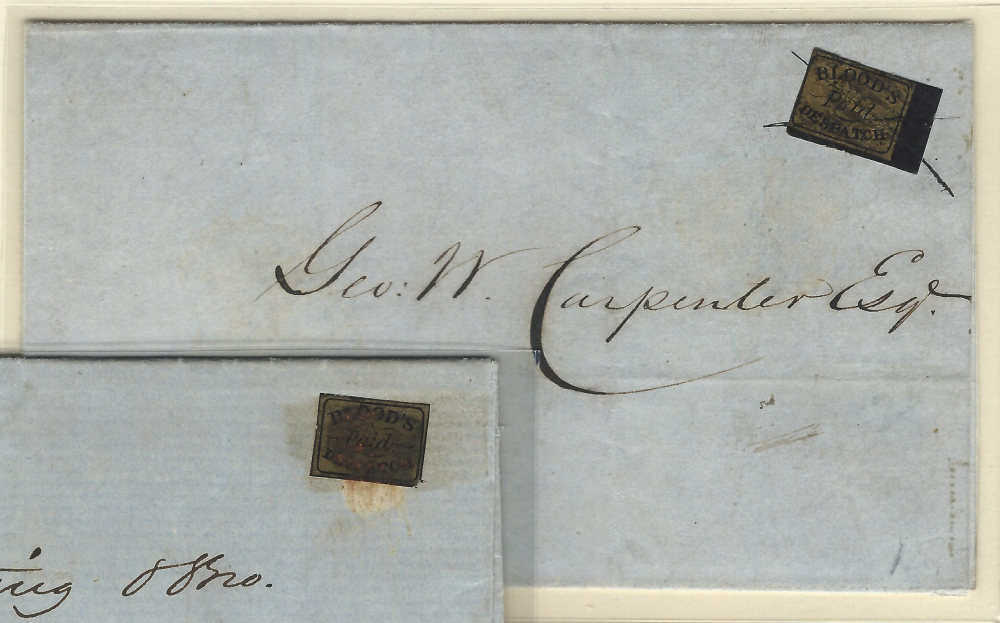 BLOOD'S
Paid
DESPATCH
Geo: W. Carpenter Esqr.
BLOOD'S
Paid
DESPATCH
& Bro.